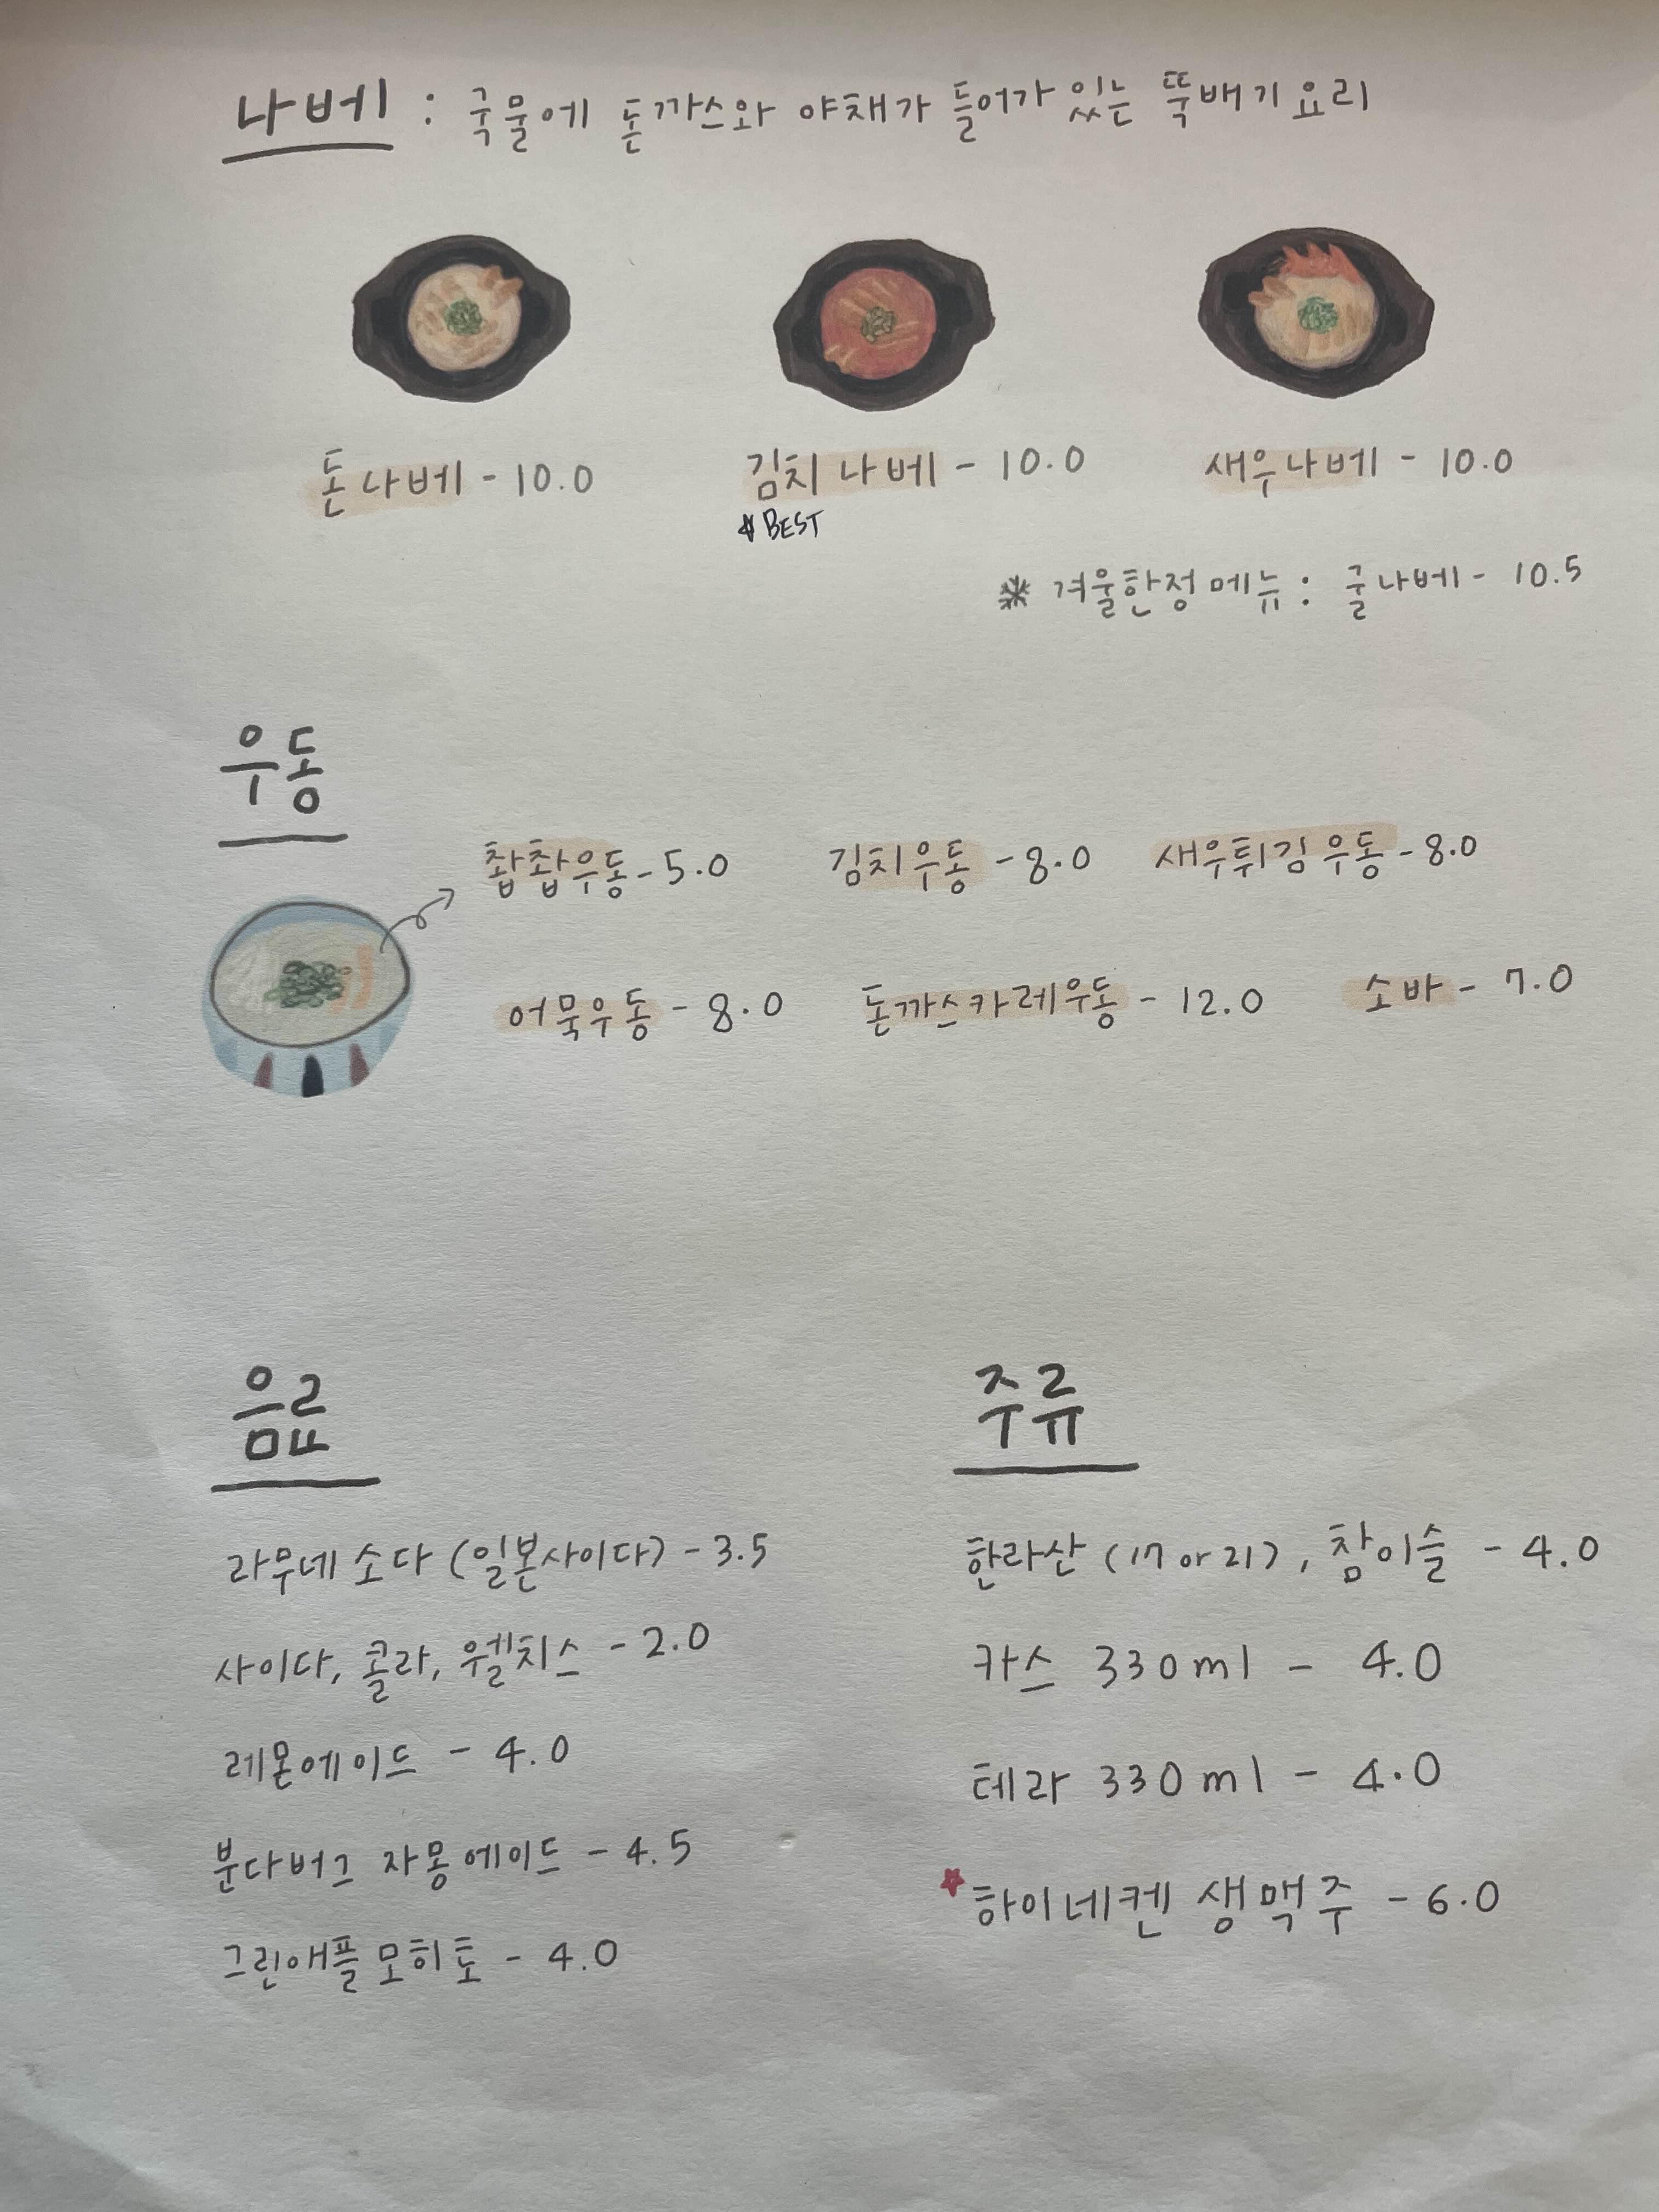 나베 : 국물에 돈까스와 야채가 들어가 있는 뚝배기요리
돈나베 - 10.0
김치나베 - 10.0
★BEST
새우나베 - 10.0
※ 겨울한정메뉴 : 굴나베 - 10.5
우동
촵촵우동 - 5.0
김치우동 - 8.0
새우튀김우동 - 8.0
어묵우동 - 8.0
돈까스카레우동 - 12.0
소바 - 7.0
음료
라무네소다 (일본사이다) - 3.5
사이다, 콜라, 웰치스 - 2.0
레몬에이드 - 4.0
분다버그 자몽에이드 - 4.5
그린애플모히토 - 4.0
주류
한라산 (17 or 21), 참이슬 - 4.0
카스 330ml - 4.0
테라 330ml - 4.0
★하이네켄 생맥주 - 6.0